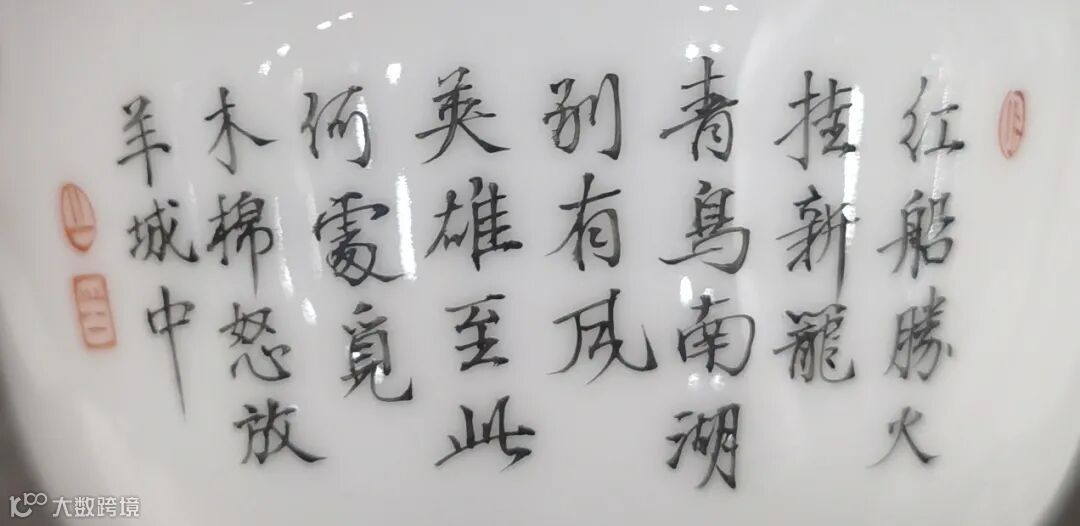 红船勝火
挂新籠
青鳥南湖
别有风
英雄至此
何處覓
木棉怒放
羊城中
大数跨境